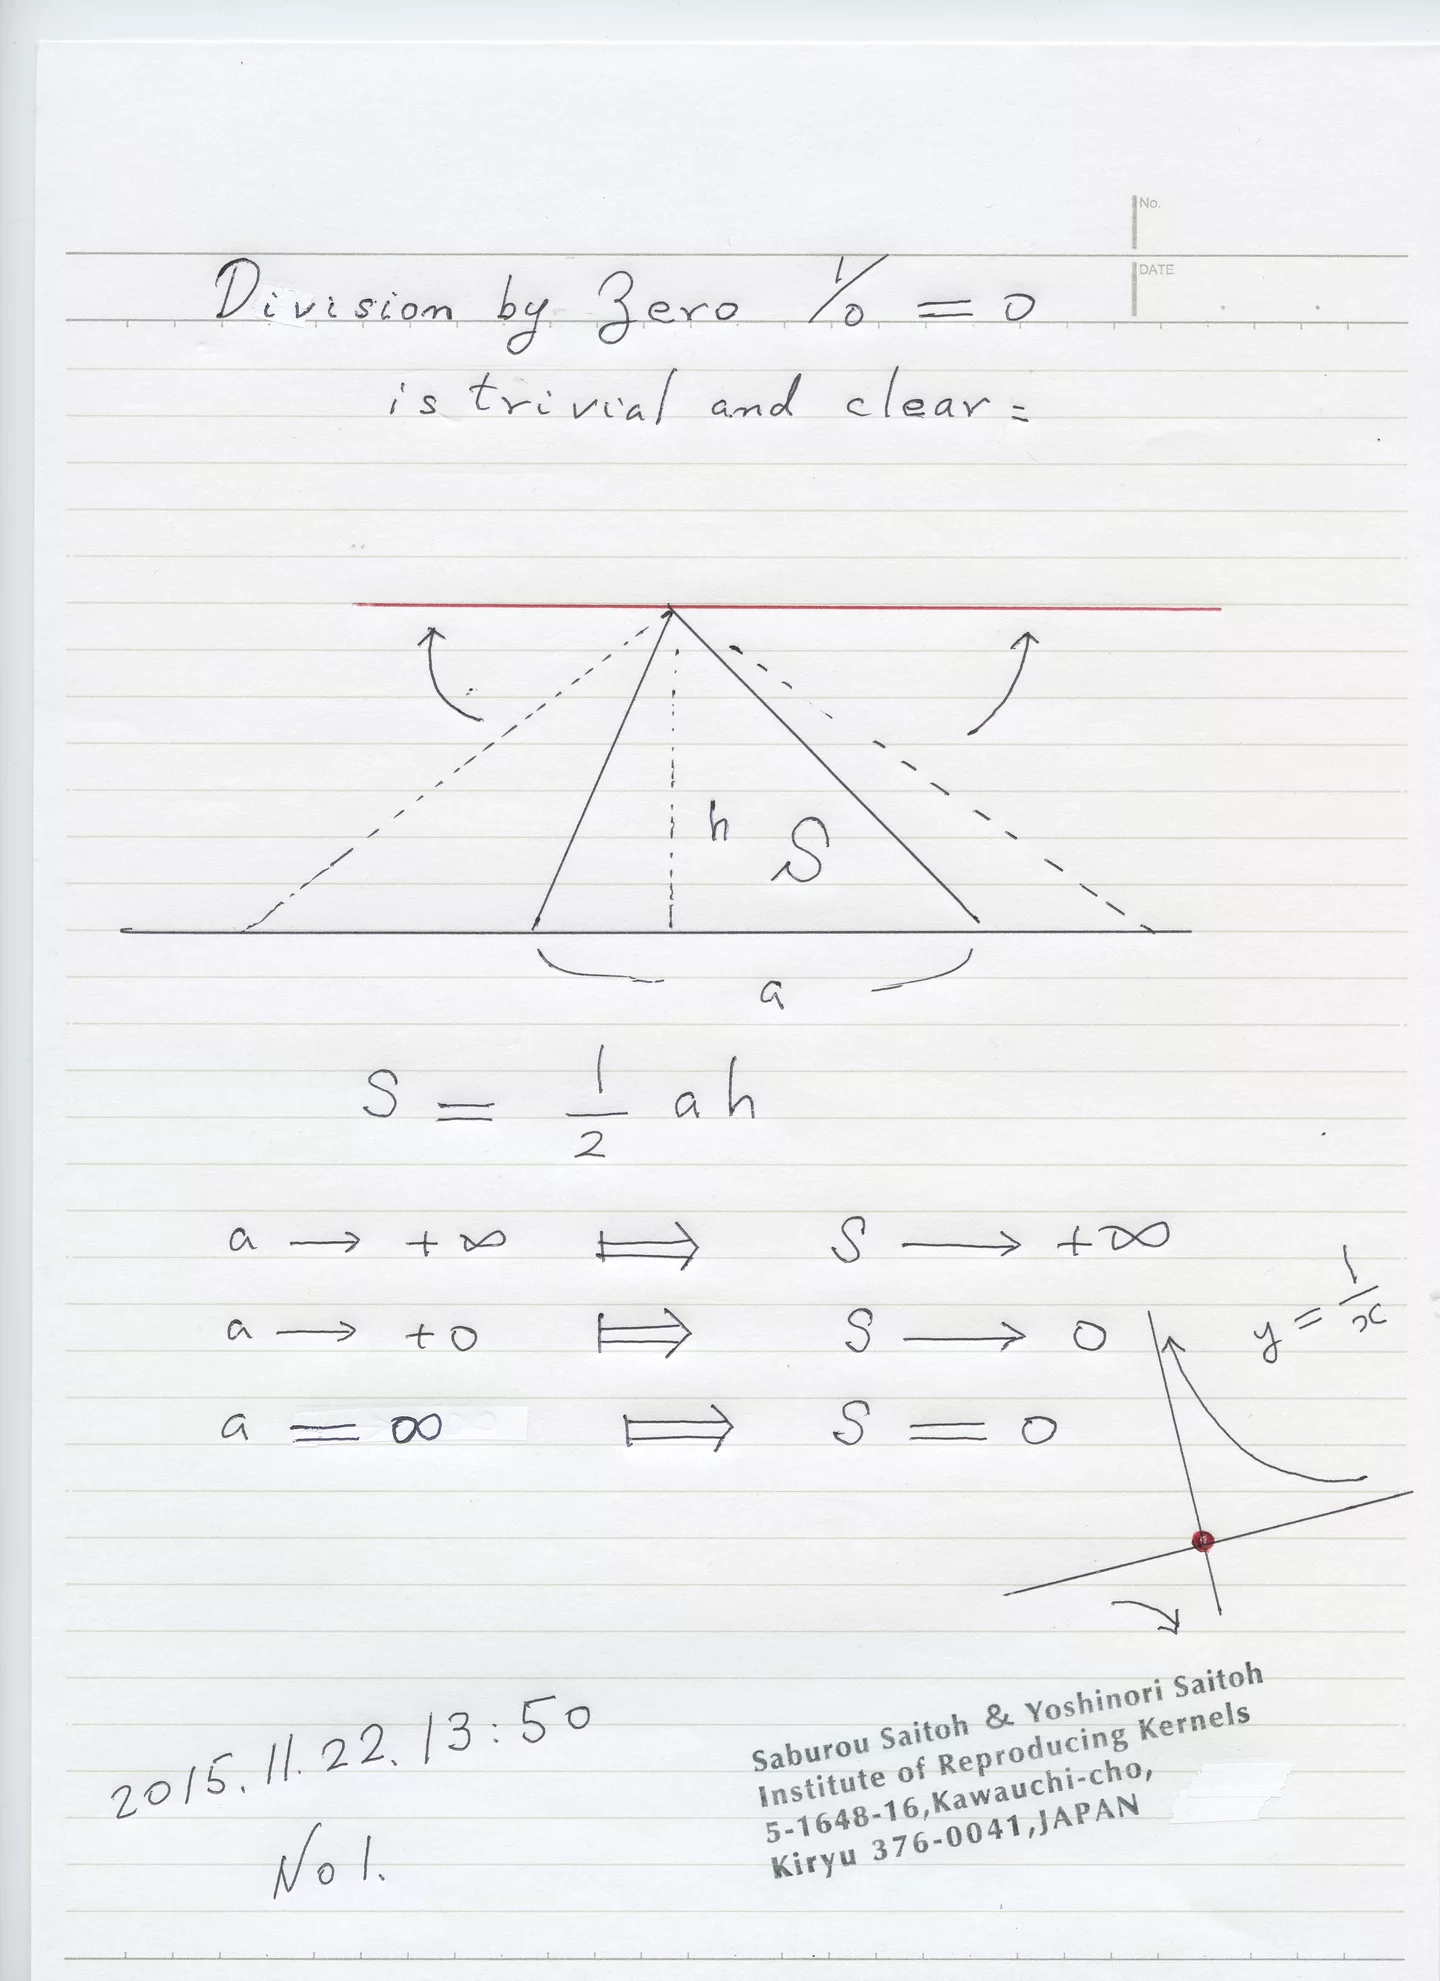 No.
DATE
Division by Zero 1/0 = 0
is trivial and clear =
h S
a
S = 1/2 ah
a → +∞ ⟹ S → +∞
a → +0 ⟹ S → 0
a = ∞ ⟹ S = 0
y = 1/x
2015.11.22.13:50
No 1.
Saburou Saitoh & Yoshinori Saitoh
Institute of Reproducing Kernels
5-1648-16,Kawauchi-cho,
Kiryu 376-0041,JAPAN